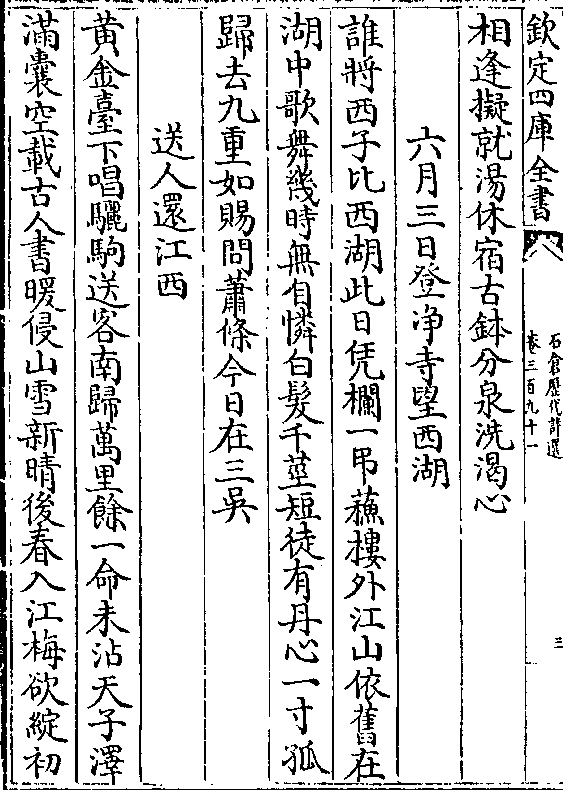 欽定四庫全書
石倉歴代詩選
卷三百九十一
三
相逢擬就湯休宿古鉢分泉洗渴心
六月三日登净寺望西湖
誰將西子比西湖此日凭欄一弔蘓樓外江山依舊在
湖中歌舞幾時無自憐白髮千莖短徒有丹心一寸孤
歸去九重如賜問蕭條今日在三吳
送人還江西
黄金臺下唱驪駒送客南歸萬里餘一命未沾天子澤
滿囊空載古人書暖侵山雪新晴後春入江梅欲綻初